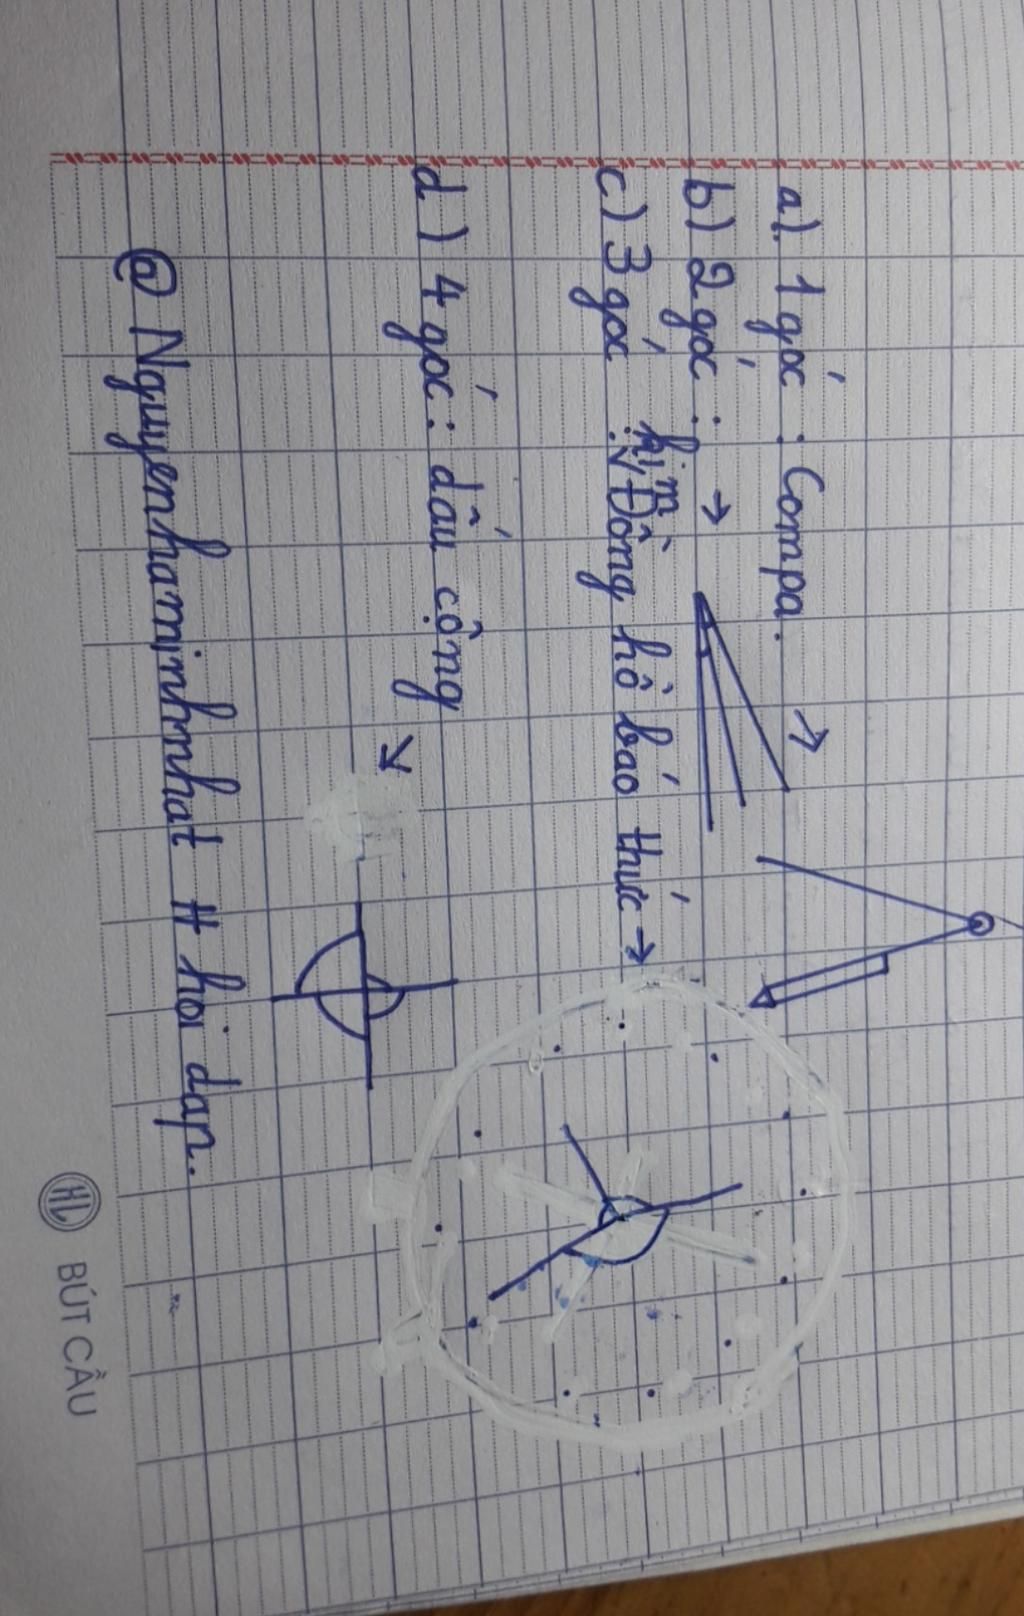 a) 1 góc : Compa. →
b) 2 góc : →
c) 3 góc : Đồng hồ báo thức →
kim
d) 4 góc : dấu cộng →
@ Nguyenhaminhnhat # hoi dap.
HL BÚT CÂU